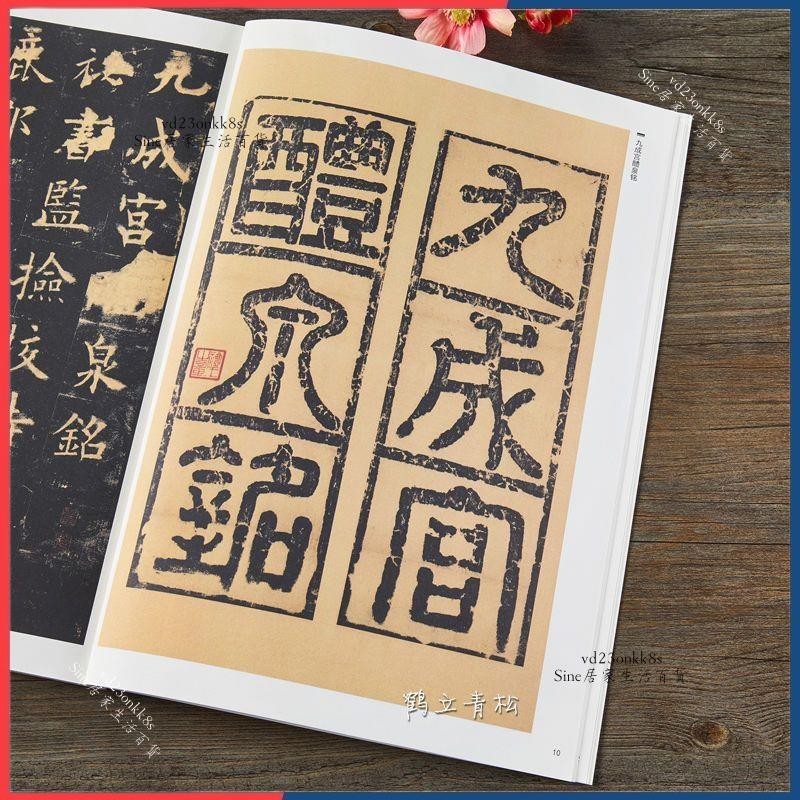 九成宫醴泉铭
九成宮
醴泉銘
九成宮
泉銘
秘書監撿校
鹿郡
10
鹤立青松
vd23onkk8s
Sine居家生活百貨
vd23onkk8s
Sine居家生活百貨
vd23onkk8s
Sine居家生活百貨
vd23onkk8s
Sine居家生活百貨